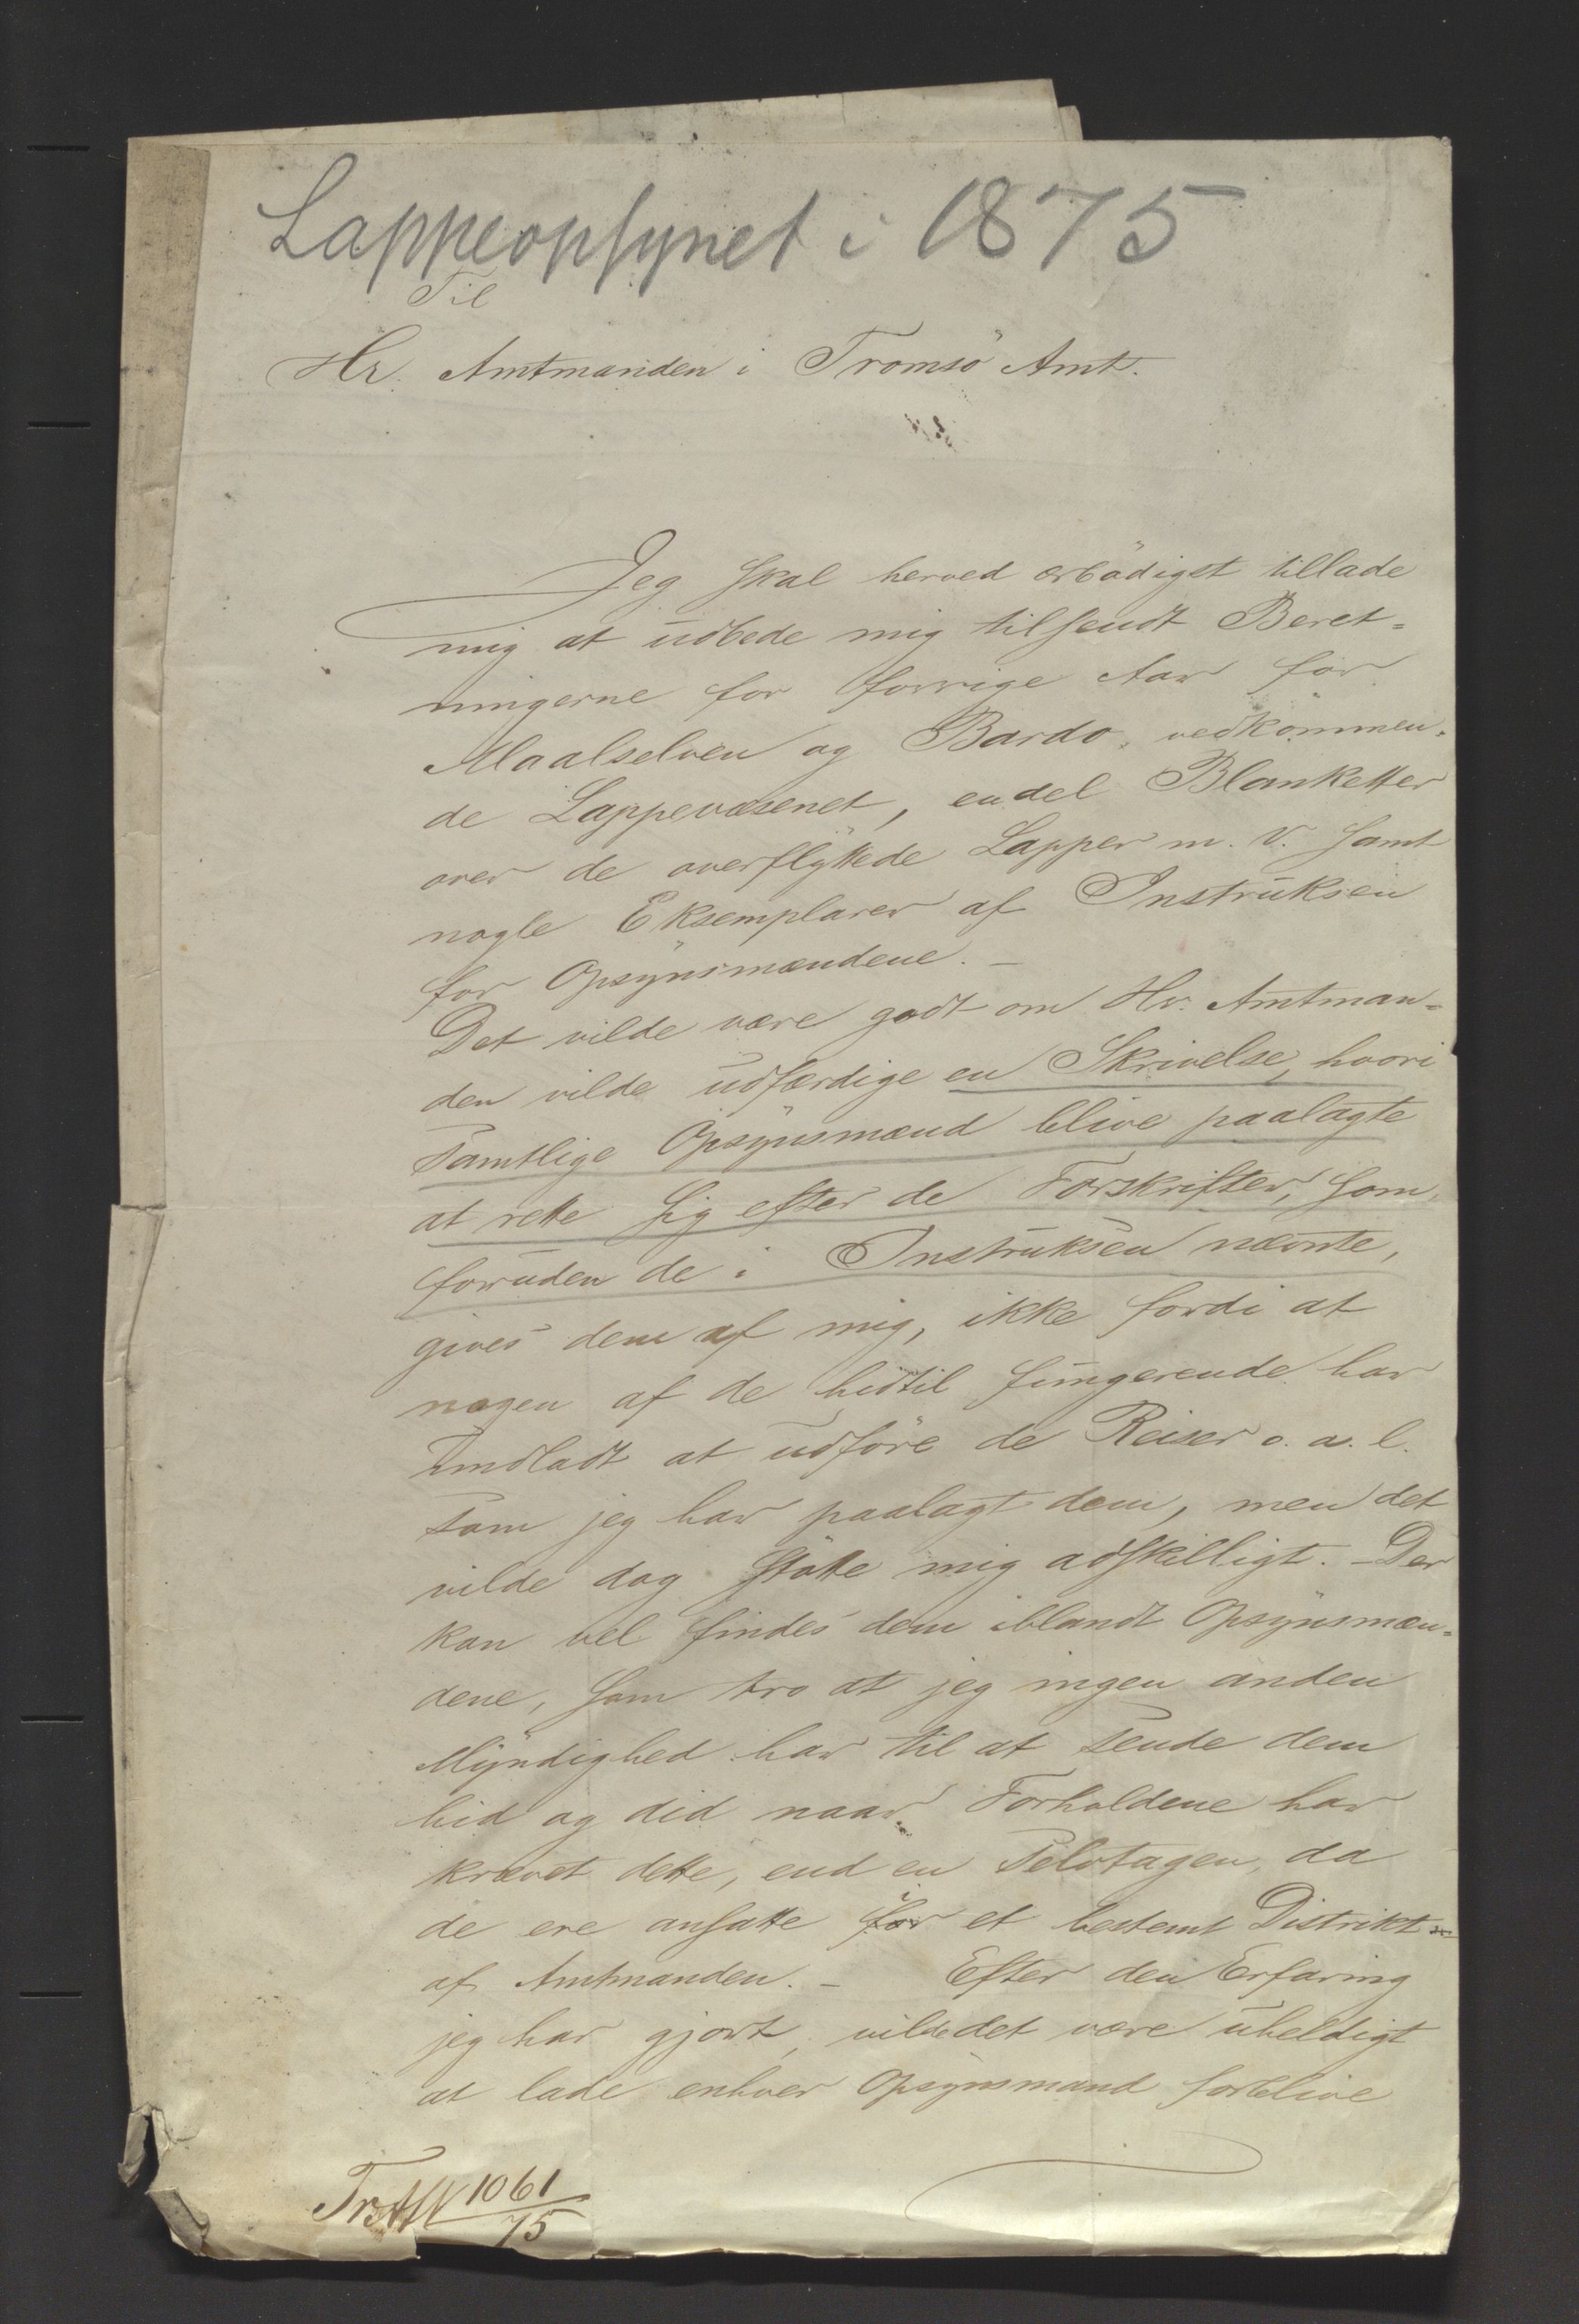 Lappeopsynet i 1875
Til
Hr. Amtmanden i Tromsö Amt.
Jeg skal herved ærbödigst tillade
mig at udbede mig tilsendt Beret=
ningerne for forrige Aar for
Maalselven og Bardo, vedkommen=
de Lappevæsenet, endel Blanketter
over de overflyttede Lapper m. v. samt
nogle Eksemplarer af Instruksen
for Opsynsmændene. –
Det vilde være godt om Hr. Amtman=
den vilde udfærdige en Skrivelse, hvori
samtlige Opsynsmænd blive paalagte
at rette sig efter de Forskrifter, som,
foruden de i Instruksen nævnte,
gives dem af mig, ikke fordi at
nogen af de hidtil fungerende har
undladt at udföre de Reiser o. a. l.
som jeg har paalagt dem, men det
vilde dog stötte mig adskilligt. – Der
kan vel findes dem iblandt Opsynsmæn=
dene, som tro at jeg ingen anden
Myndighed har til at sende dem
hid og did naar Forholdene har
krævet dette, end en Selvtagen, da
de ere ansatte for et bestemt Distrikt
af Amtmanden. – Efter den Erfaring
jeg har gjort, vilde det være uheldigt
at lade enhver Opsynsmand forblive
1061
75